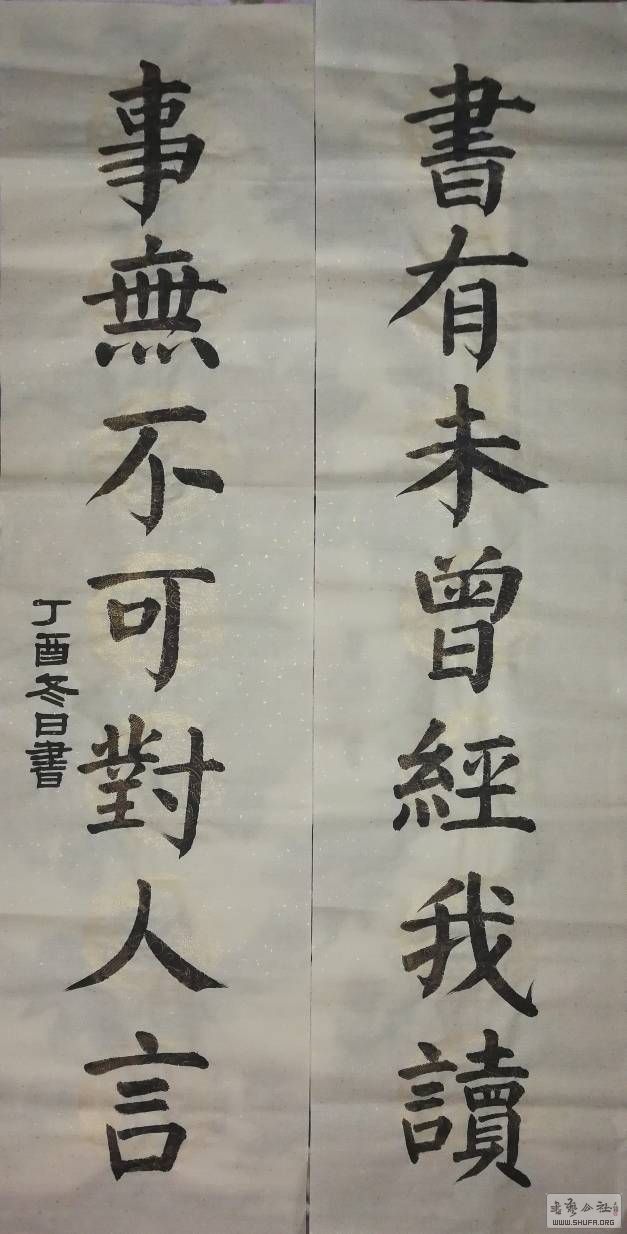 書有未曾經我讀
事無不可對人言
丁酉冬日書
书艺公社
WWW.SHUFA.ORG